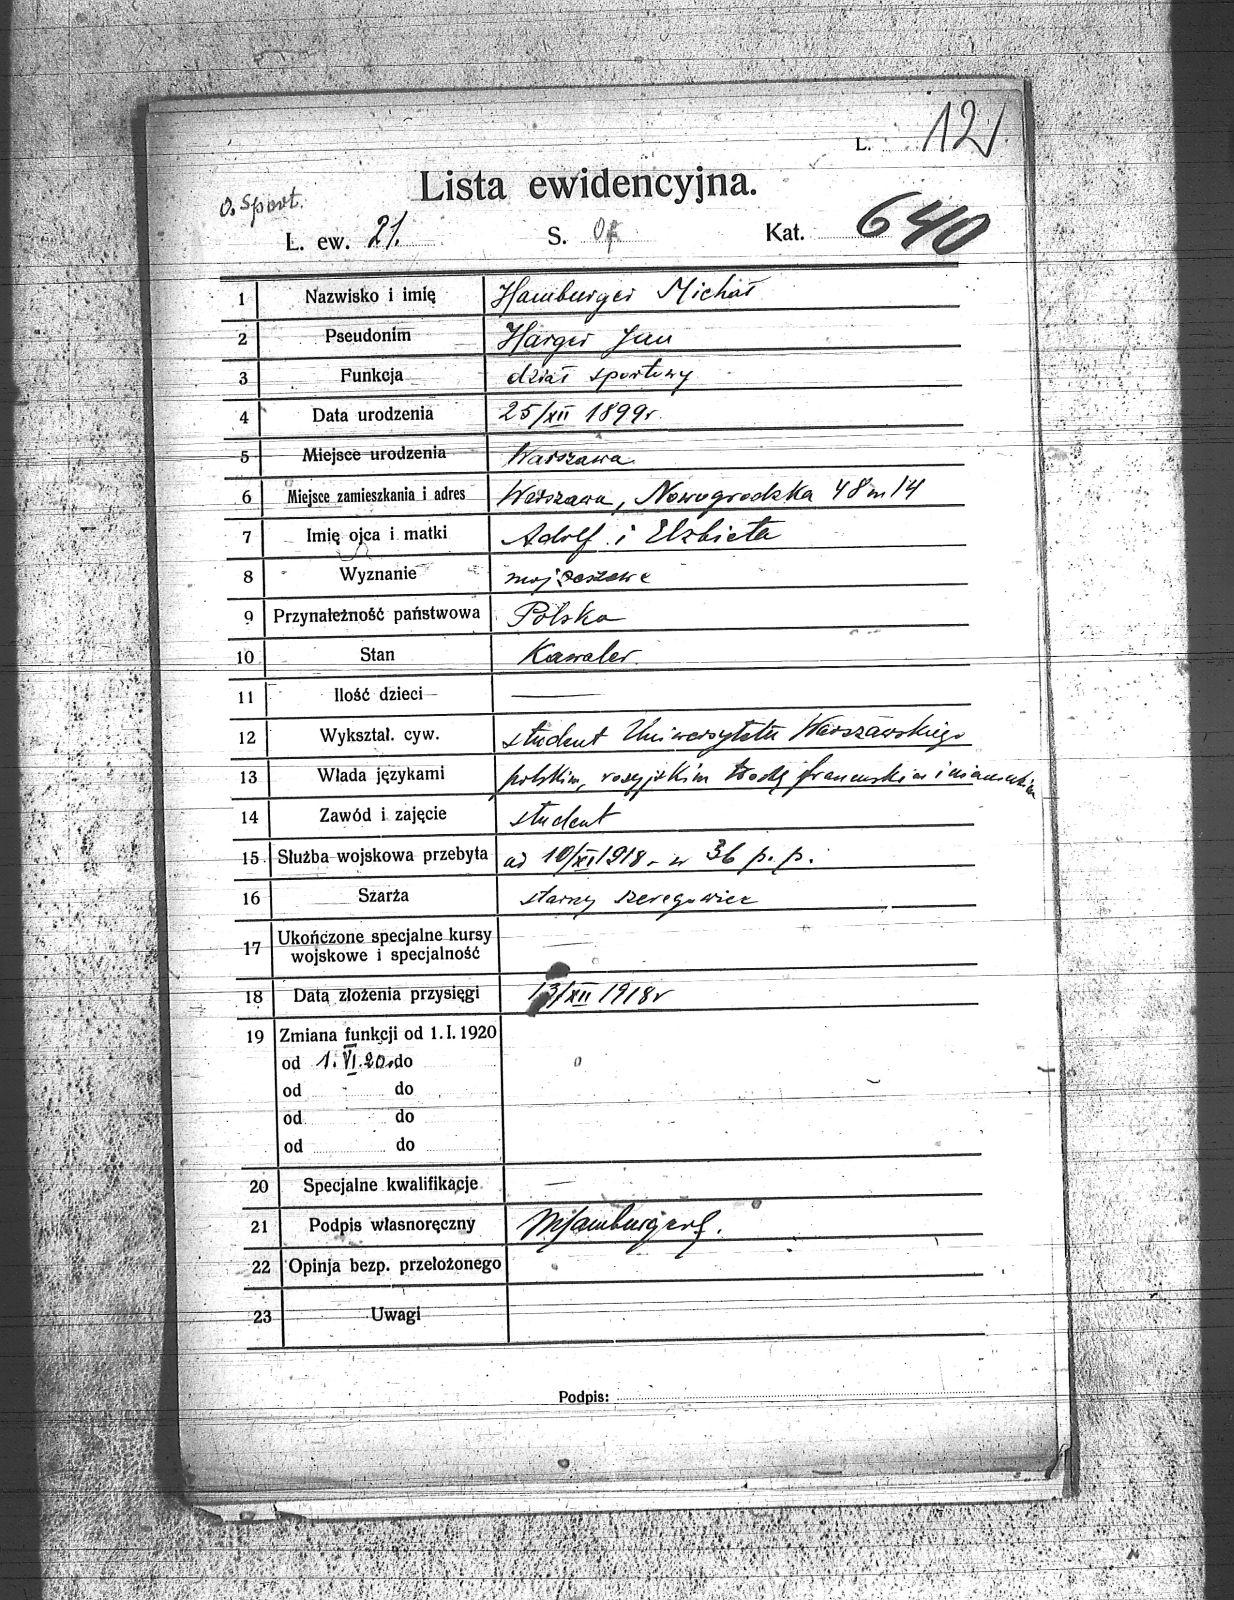 L. 12
Lista ewidencyjna.
o. sport.
L. ew. 21. S. Of Kat. 640
1 Nazwisko i imię Hamburger Michał
2 Pseudonim Harger Jan
3 Funkcja dział sportowy
4 Data urodzenia 25/XII 1899r.
5 Miejsce urodzenia Warszawa
6 Miejsce zamieszkania i adres Warszawa, Nowogrodzka 48 m 14
7 Imię ojca i matki Adolf i Elżbieta
8 Wyznanie mojżeszowe
9 Przynależność państwowa Polska
10 Stan Kawaler
11 Ilość dzieci —
12 Wykształ. cyw. student Uniwersytetu Warszawskiego
13 Włada językami polskim, rosyjskim francuskim i niemieckim
14 Zawód i zajęcie student
15 Służba wojskowa przebyta od 10/XI 1918 - w 36 p. p.
16 Szarża starszy szeregowiec
17 Ukończone specjalne kursy
wojskowe i specjalność —
18 Data złożenia przysięgi 13/XII 1918r
19 Zmiana funkcji od 1. I. 1920
od 1. VI. 20. do
od do
od do
od do
20 Specjalne kwalifikacje —
21 Podpis własnoręczny MHamburger
22 Opinja bezp. przełożonego
23 Uwagi
Podpis: